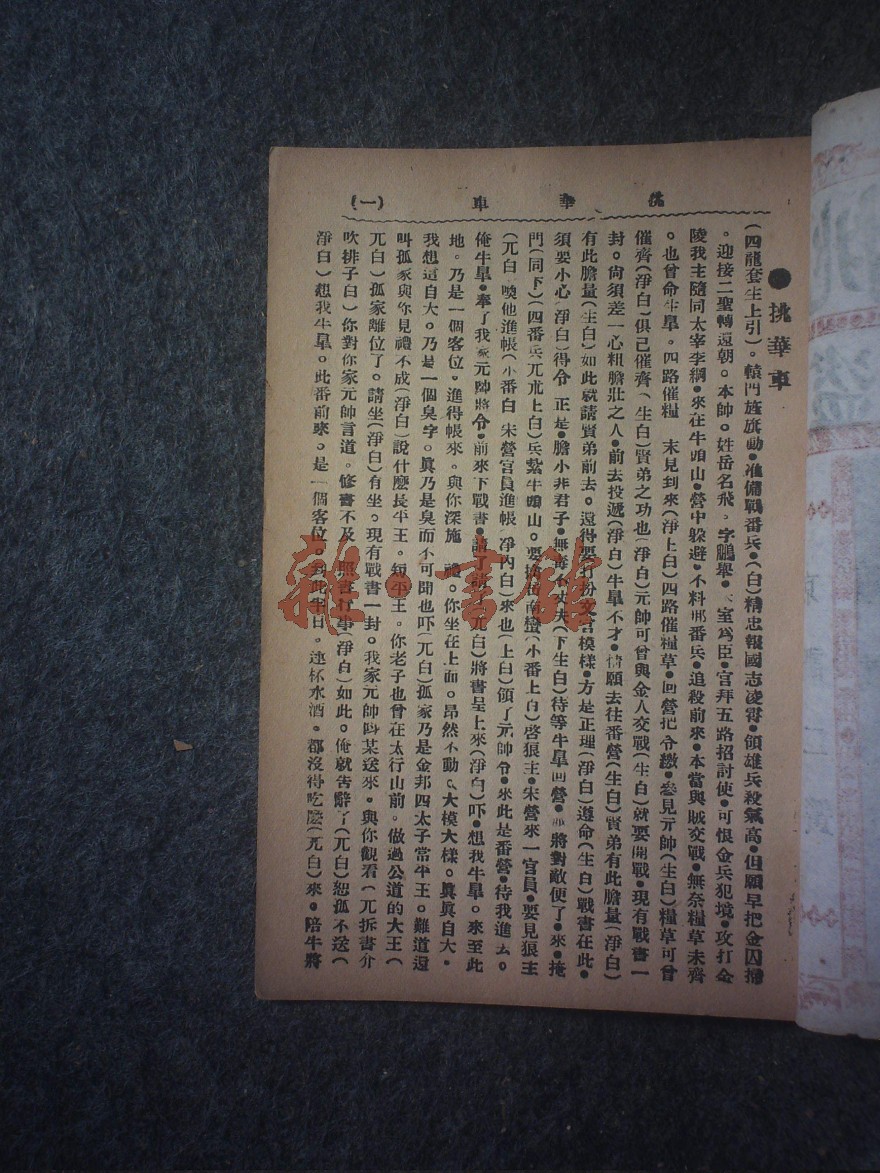 挑華車 (一)
●挑華車
(四龍套生上引)。轅門旌旗動●准備戰番兵●(白)精忠報國志凌霄●領雄兵殺氣高●但願早把金囚掃
。迎接二聖轉還朝。本帥●姓岳名飛。字鵬舉● 室爲臣●官拜五路招討使●可恨金兵犯境●攻打金
陵我主隨同太宰李綱●來在牛頭山●營中躲避●不料那番兵●追殺前來●本當與賊交戰●無奈糧草未齊
。也曾命牛臯。四路催糧 未見到來(淨上白)四路催糧草●回營把令繳●參見元帥(生白)糧草可曾
催齊(淨白)俱已催齊(生白)賢弟之功也(淨白)元帥可曾與金人交戰(生白)就要開戰●現有戰書一
封●尚須差一心粗膽壯之人●前去投遞(淨白)牛臯不才●情願去往番營(生白)賢弟有此膽量(淨白)
有此膽量(生白)如此就請賢弟前去。還得要打扮文官模樣●方是正理(淨白)遵命(生白)戰書在此●
須要小心(淨白)得令 正是●膽小非君子●無毒不丈夫(下生白)待等牛臯回營● 將對敵便了●來●掩
門(同下)(四番兵兀朮上白)兵紮牛頭山。要 南蠻(小番上白)啓狼主●宋營來一官員●要見狼主
(兀白 喚他進帳(小番白 宋營官員進帳 淨內白)來也(上白)領了元帥令●來此是番營●待我進去。
俺牛臯●奉了我家元帥將令●前來下戰書●請了請了(兀白)將書呈上來(淨白)吓●想我牛臯。來至此
地。乃是一個客位。進得帳來。與你深施 禮。你坐在上面。昂然不動。大模大樣。眞眞自大。
我想這自大。乃是一個臭字。眞乃是臭而不可聞也吓(兀白)孤家乃是金邦四太子當平王。難道還
叫孤家與你見禮不成(淨白)說什麼長平王。短平王。你老子也曾在太行山前。做過公道的大王(
兀白)孤家離位了。請坐(淨白)有坐。現有戰書一封。我家元帥 某送來。與你觀看(兀拆書介
吹排子白)你對你家元帥言道。修書不及 照書行事(淨白)如此。俺就告辭了(兀白)恕孤不送(
淨白)想我牛臯。此番前來。是一個客位。到此半日。連杯水酒。都沒得吃麼(兀白)來。陪牛將
雜·書館